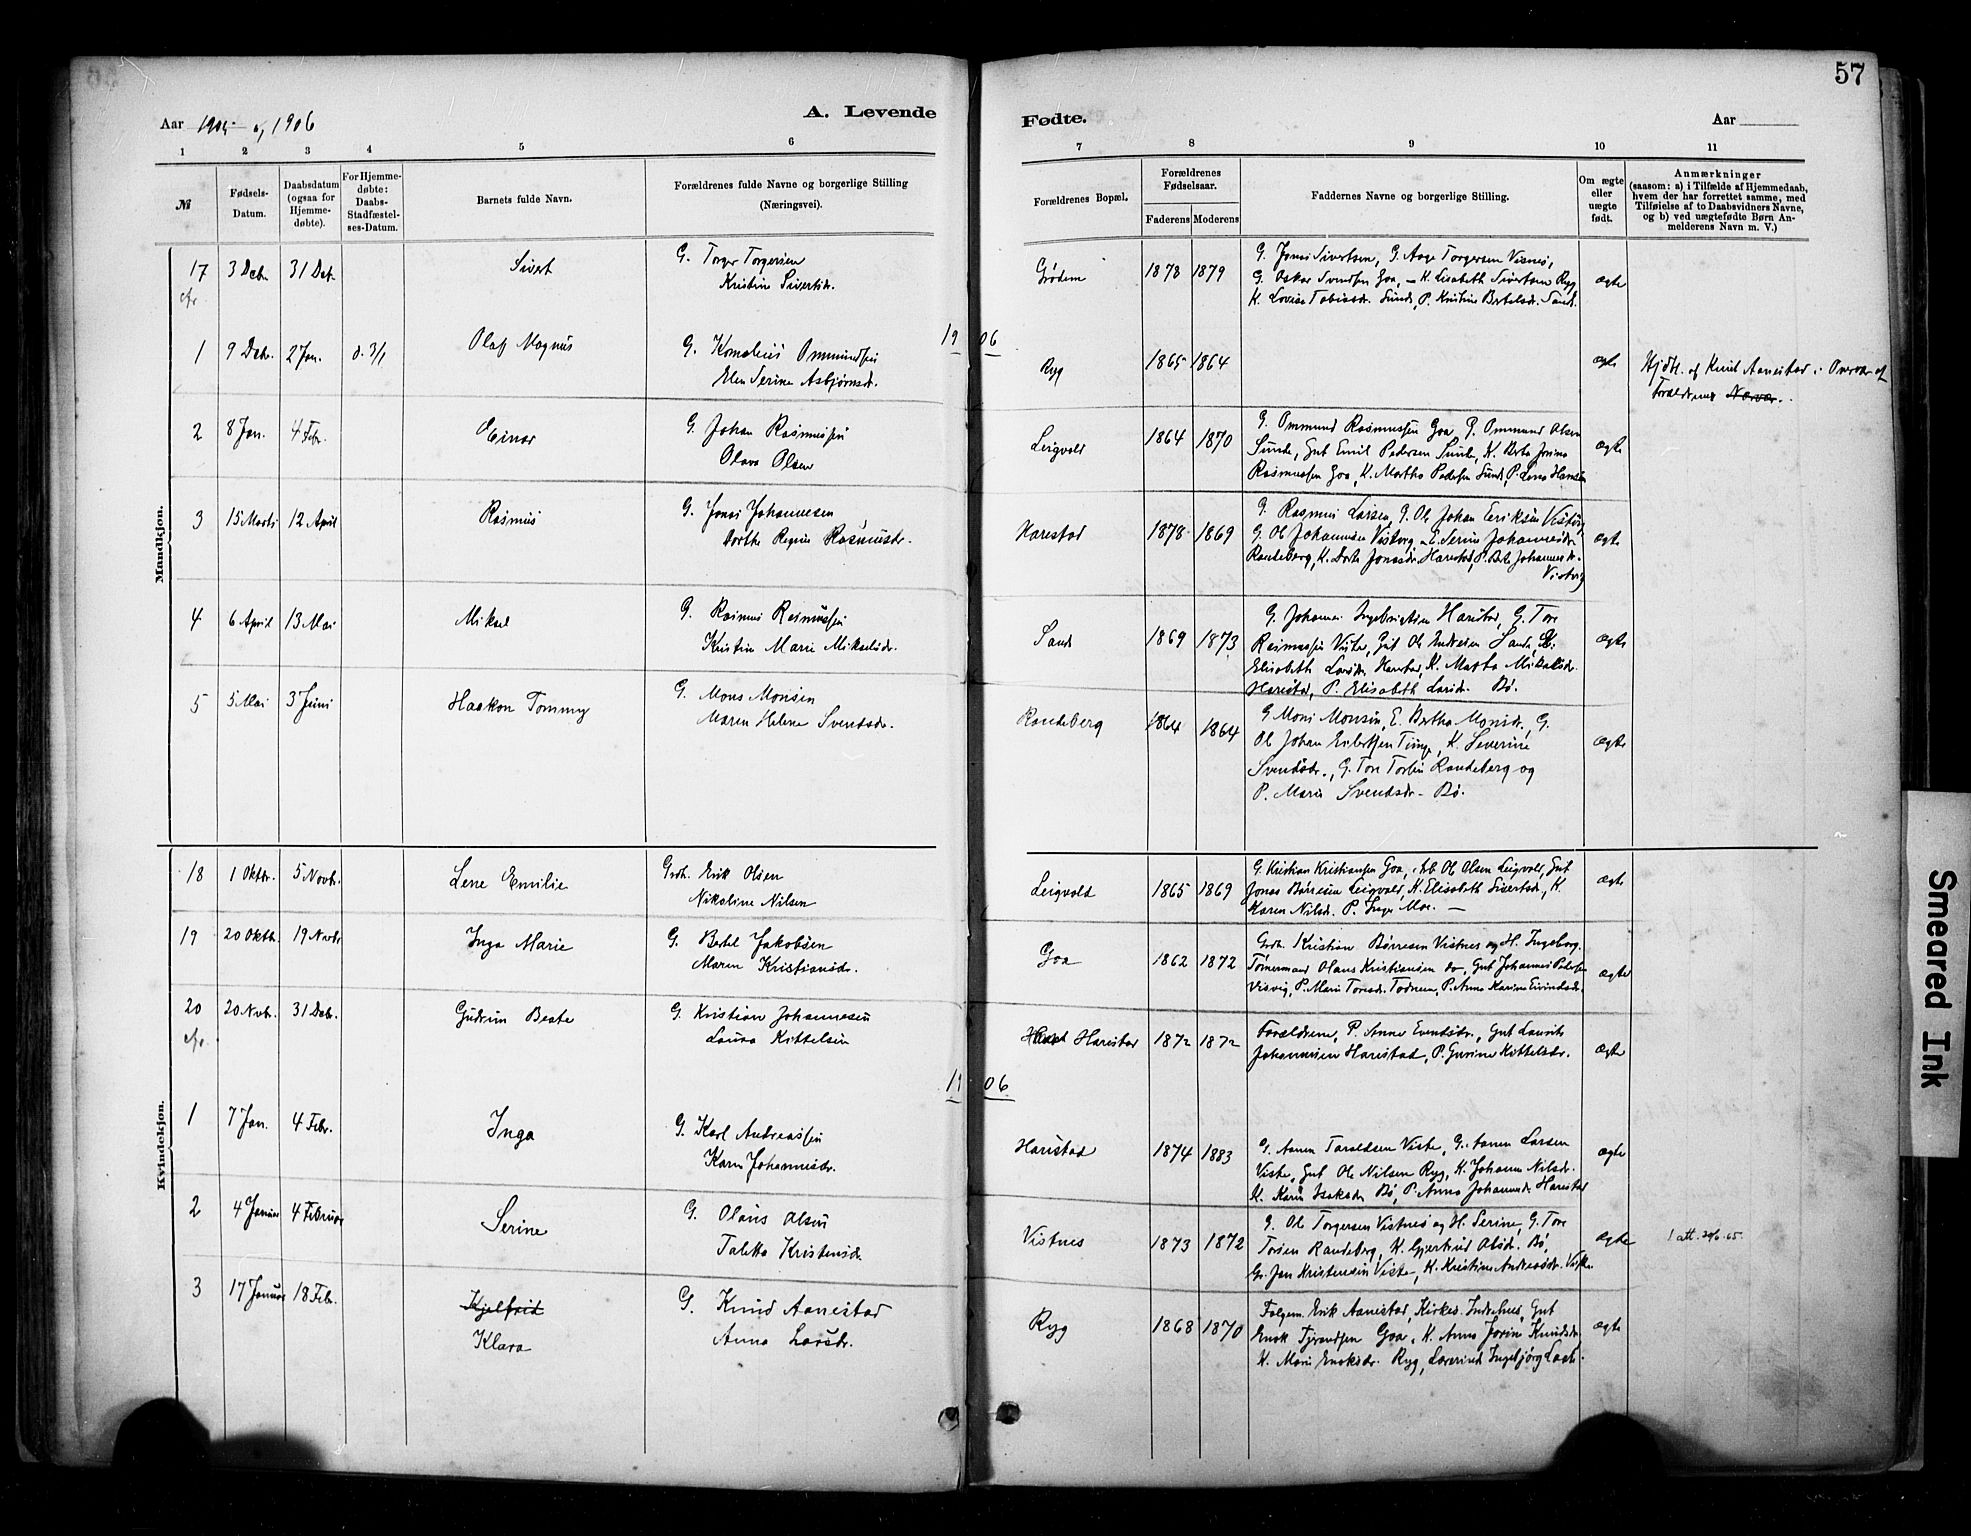 57
Aar 1905 og 1906
A. Levende
Fødte.
Aar
1 2 3 4 5 6 7 8 9 10 11
№
Fødsels-
Datum.
Daabsdatum
(ogsaa for
Hjemme-
døbte).
For Hjemme-
døbte:
Daabs-
Stadfæstel-
ses-Datum.
Barnets fulde Navn.
Forældrenes fulde Navne og borgerlige Stilling
(Næringsvei).
Forældrenes Bopæl.
Forældrenes
Fødselsaar.
Faderens Moderens
Faddernes Navne og borgerlige Stilling.
Om ægte
eller
uægte
født.
Anmærkninger
(saasom: a) i Tilfælde af Hjemmedaab,
hvem der har forrettet samme, med
Tilføielse af to Daabsvidners Navne,
og b) ved uægtefødte Børn An-
melderens Navn m. V.)
Mandkjøn.
17 3 Debr 31 Deb. Sivert
G. Torger Torgersen
Kristine Sivertsdr.
Grødem 1878 1879
G. Jonas Sivertsen, G. Aage Torgersen Visnes,
G. Oskar Svendsen Goa, K. Lisabeth Sivertsen Ryg,
K. Lovise Tobiasdr. Sunde, P. Kristine Bertelsdr. Sand.
ægte
1906
1 9 Debr. 2 Jan. d. 3/1 Olaf Magnus
G. Kornelius Ommundsen
Elen Serine Asbjørnsdr.
Ryg 1865 1864
ægte
Hjdbt. af Knud Aanestad i Overvær af
Forældrenes Nærvær.
2 8 Jan. 4 Febr. Einar
G. Johan Rasmussen
Olava Olsen
Leigvold 1864 1870
G. Ommund Rasmussen Goa, G. Ommund Olsen
Sunde, Gut Emil Pedersen Sunde, K. Berta Jorina
Rasmussen Goa, K. Martha Pedersen Sunde, P. Lena Hansen
ægte
3 15 Marts 12 April Rasmus
G. Jonas Johannesen
Dorthe Regine Rasmusdr.
Harestad 1878 1869
G. Rasmus Larsen, G. Ole Johan Eriksen Vistvig,
G. Ole Johannesen Vistvig, E. Serine Johannesdr.
Randeberg, K. Dorte Jonasdr. Harestad, P. Berte Johannesdr.
Vistvig
ægte
4 6 April 13 Mai Mikael
G. Rasmus Rasmussen
Kristin Marie Mikaelsdr.
Sande 1869 1873
G. Johannes Ingebrigtsen Harestad, G. Tore
Rasmussen Viste, Gut Ole Andresen Sande, K.
Elisabeth Larsdr. Harestad, K. Marta Mikalsdr.
Harestad, P. Elisabeth Larsdr. Bø.
ægte
5 5 Mai 3 Juni Haakon Tommy
G. Mons Monsen
Maren Helene Svendsdr.
Randeberg 1864 1864
G. Mons Monsen, E. Bertha Monsdr., G.
Ole Johan Tunge, K. Severine
Svendsdr., G. Tore Torsen Randeberg og
P. Marie Svendsdr. Bø.
ægte
Kvindekjøn.
18 1 Oktbr. 5 Novb. Lene Emilie
Grdb. Erik Olsen
Nikoline Nilsen
Leigvold 1865 1869
G. Kristian Kristiansen Goa, Ole Olsen Leigvold, Gut
Jonas Børresen Leigvold, K. Elisabeth Sivertsdr., K.
Karen Nilsdr. P. Inga Moe.
ægte
19 20 Oktb. 19 Novbr Inga Marie
G. Bertel Jakobsen
Maren Kristiansdr.
Goa 1862 1872
Grdb. Kristian Børresen Vistnes og H. Ingeborg.
Tømermand Olaus Kristiansen do, Gut Johannes Pedersen
Visvig, P. Marie Toresdr. Todnem, P. Anne Karine Eivindsdr.
ægte
20 20 Novb. 31 Debr. Gudrun Beate
G. Kristian Johannesen
Laura Kittelsen
Harestad 1872 1872
Forældrene, P. Anne Evensdr., Gut Laurits
Johannesen Harestad, P. Gurine Kittelsdr.
ægte
1906
1 7 Jan. 4 Febr. Inga
G. Karl Andreassen
Karen Johannesdr.
Harestad 1874 1883
G. Aanen Taraldsen Viste, G. Aanen Larsen
Viste, Gut Ole Nilsen Ryg, K. Johanne Nilsdr.
K. Karen Isaksdr. Bø, P. Anna Johannesdr. Harestad
ægte
2 4 Januar 4 Februar Serine
G. Olaus Olsen
Taletta Kristensdr.
Vistnes 1873 1872
G. Ole Torgersen Vistnes og H. Serine, G. Tore
Torsen Randeberg, K. Gjertrud Olsdr. Bø,
G. Jan Kristensen Viste, K. Kristine Andreasdr. Viste
ægte
1 att. 29/6-65.
3 17 Januar 18 Febr. Kjelfrid
Klara
G. Knud Aanestad
Anna Larsdr.
Ryg 1868 1870
Folgem. Erik Aanestad, Kirkes. Indrehus, Gut
Enok Tjerandsen Goa, K. Anna Jorine Knudsdr.
K. Marie Enoksdr. Ryg, Lærerinde Ingebjørg
ægte
Smeared Ink